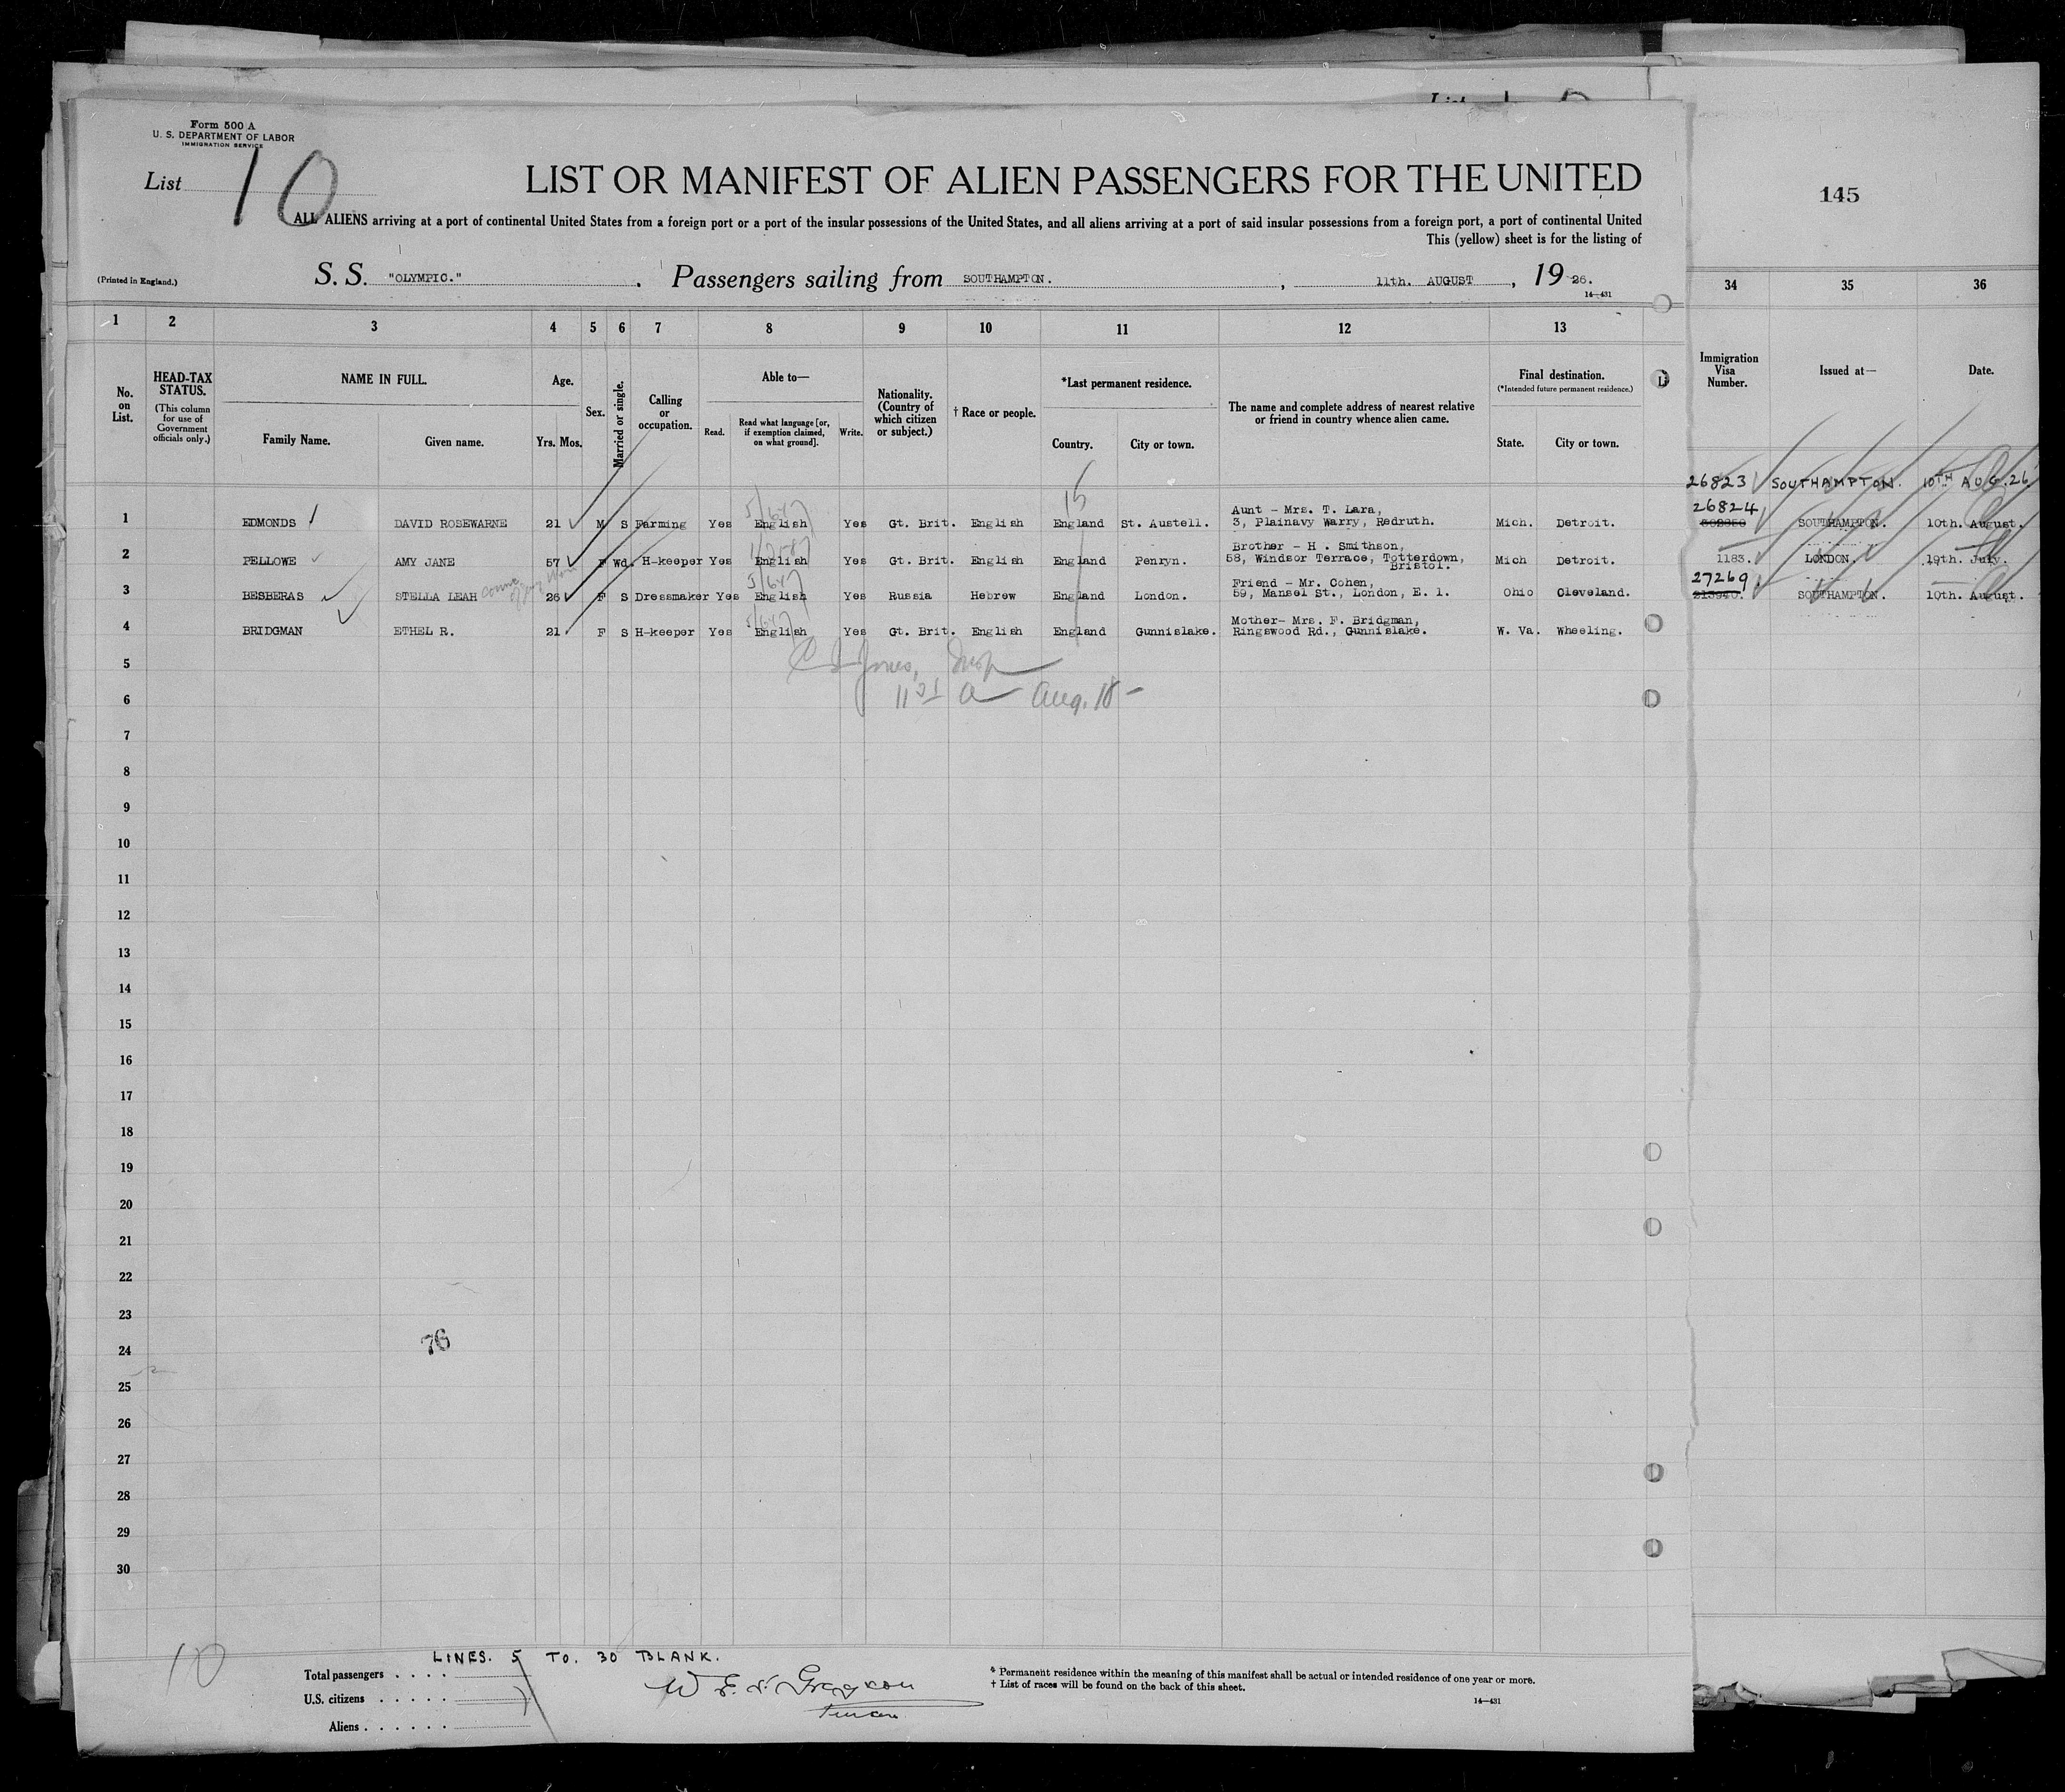 Form 500 A
U. S. DEPARTMENT OF LABOR
IMMIGRATION SERVICE
List 10
LIST OR MANIFEST OF ALIEN PASSENGERS FOR THE UNITED
145
ALL ALIENS arriving at a port of continental United States from a foreign port or a port of the insular possessions of the United States, and all aliens arriving at a port of said insular possessions from a foreign port, a port of continental United
This (yellow) sheet is for the listing of
(Printed in England.) S. S. "OLYMPIC." . Passengers sailing from SOUTHAMPTON. , 11th. AUGUST , 19 26.
14-431
1 2 3 4 5 6 7 8 9 10 11 12 13 34 35 36
No. on List.
HEAD-TAX STATUS.
(This column for use of Government officials only.)
NAME IN FULL.
Family Name. Given name.
Age.
Yrs. Mos.
Sex.
Married or single.
Calling or occupation.
Able to—
Read. Read what language [or, if exemption claimed, on what ground]. Write.
Nationality. (Country of which citizen or subject.)
† Race or people.
*Last permanent residence.
Country. City or town.
The name and complete address of nearest relative or friend in country whence alien came.
Final destination.
(*Intended future permanent residence.)
State. City or town.
Immigration Visa Number.
Issued at—
Date.
26823 SOUTHAMPTON. 10TH AUG. 26
26824
1 EDMONDS DAVID ROSEWARNE 21 M S Farming Yes English Yes Gt. Brit. English England St. Austell. Aunt - Mrs. T. Lara, 3, Plainavy Warry, Redruth. Mich. Detroit. SOUTHAMPTON. 10th. August.
2 PELLOWE AMY JANE 57 F Wd. H-keeper Yes English Yes Gt. Brit. English England Penryn. Brother - H. Smithson, 58, Windsor Terrace, Totterdown, Bristol. Mich Detroit. 1183. LONDON. 19th. July.
27269
3 BESBERAS STELLA LEAH 26 F S Dressmaker Yes English Yes Russia Hebrew England London. Friend - Mr. Cohen, 59, Mansel St., London, E. 1. Ohio Cleveland. 213940. SOUTHAMPTON. 10th. August.
4 BRIDGMAN ETHEL R. 21 F S H-keeper Yes English Yes Gt. Brit. English England Gunnislake. Mother- Mrs. F. Bridgman, Ringswood Rd., Gunnislake. W. Va. Wheeling.
5
6 Aug. 18
7
8
9
10
11
12
13
14
15
16
17
18
19
20
21
22
23
24
76
25
26
27
28
29
30
10
LINES. 5 TO. 30 BLANK.
Total passengers . . . .
U.S. citizens . . . . .
Aliens . . . . . .
* Permanent residence within the meaning of this manifest shall be actual or intended residence of one year or more.
† List of races will be found on the back of this sheet.
14-431